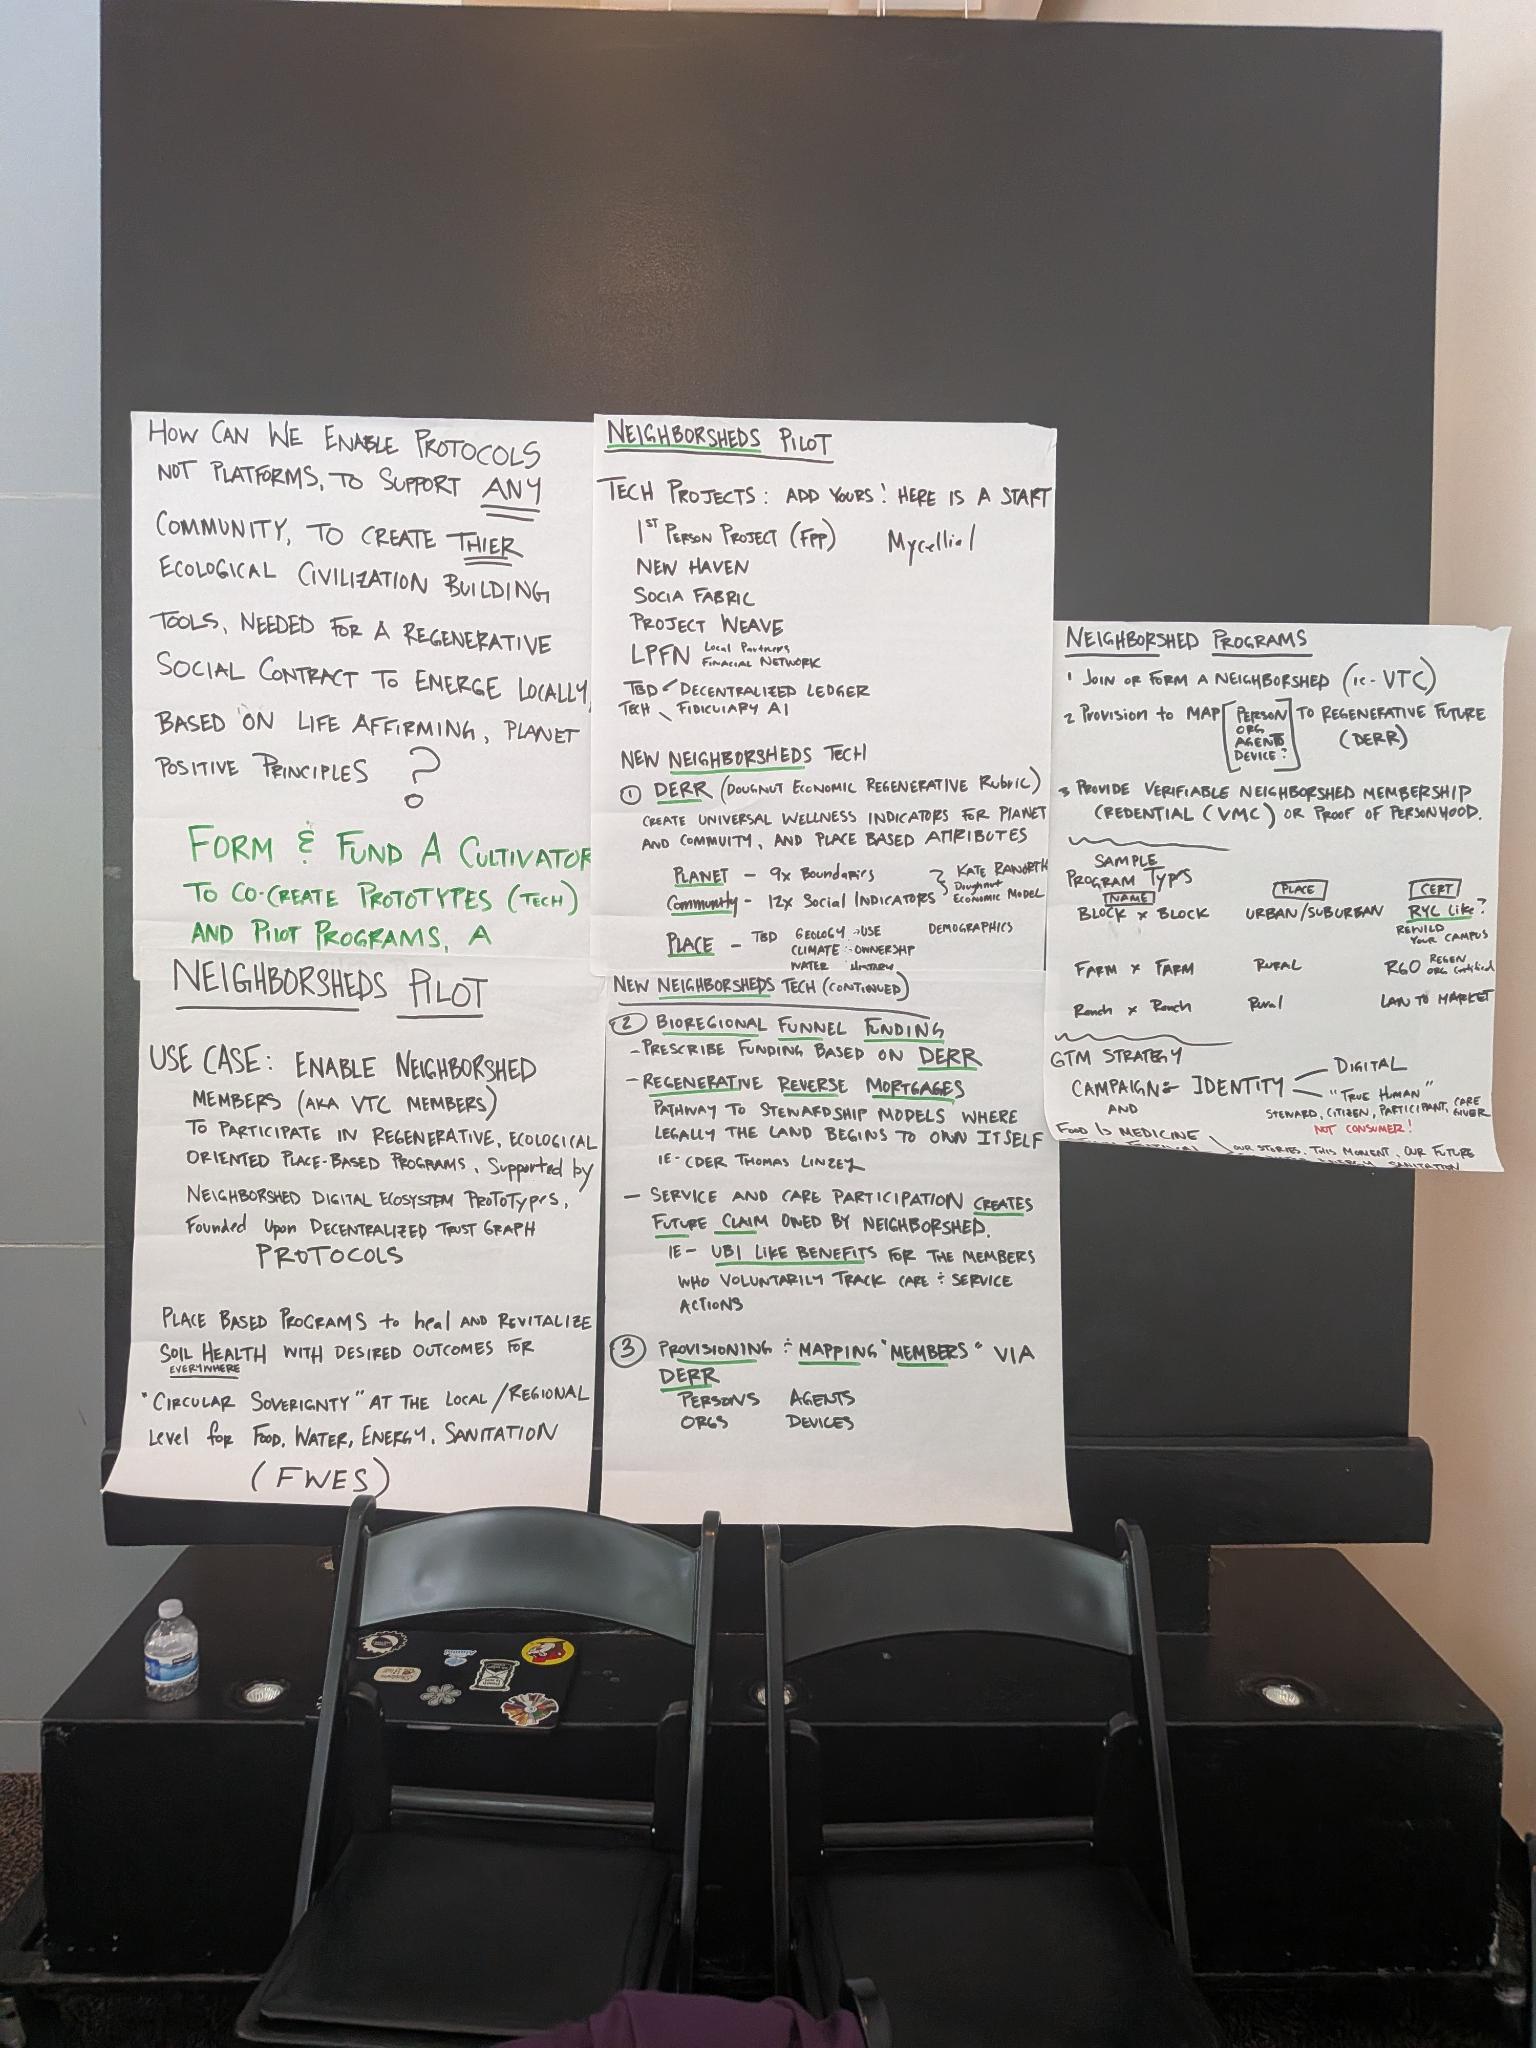 HOW CAN WE ENABLE PROTOCOLS
NOT PLATFORMS, TO SUPPORT ANY
COMMUNITY, TO CREATE THIER
ECOLOGICAL CIVILIZATION BUILDING
TOOLS, NEEDED FOR A REGENERATIVE
SOCIAL CONTRACT TO EMERGE LOCALLY,
BASED ON LIFE AFFIRMING, PLANET
POSITIVE PRINCIPLES ?
FORM & FUND A CULTIVATOR
TO CO-CREATE PROTOTYPES (TECH)
AND PILOT PROGRAMS, A
NEIGHBORSHEDS PILOT
USE CASE: ENABLE NEIGHBORSHED
MEMBERS (AKA VTC MEMBERS)
TO PARTICIPATE IN REGENERATIVE, ECOLOGICAL
ORIENTED PLACE-BASED PROGRAMS, Supported by
NEIGHBORSHED DIGITAL ECOSYSTEM PROTOTYPES,
Founded Upon DECENTRALIZED TRUST GRAPH
PROTOCOLS
PLACE BASED PROGRAMS to heal AND REVITALIZE
SOIL HEALTH WITH DESIRED OUTCOMES FOR
EVERYWHERE
"CIRCULAR SOVERIGNTY" AT THE LOCAL/REGIONAL
Level for FOOD, WATER, ENERGY, SANITATION
(FWES)
NEIGHBORSHEDS PILOT
TECH PROJECTS: ADD YOURS! HERE IS A START
1ST PERSON PROJECT (FPP) Mycellial
NEW HAVEN
SOCIA FABRIC
PROJECT WEAVE
LPFN Local Partners
FINACIAL NETWORK
TBD DECENTRALIZED LEDGER
TECH FIDICUIARY AI
NEW NEIGHBORSHEDS TECH
① DERR (DOUGNUT ECONOMIC REGENERATIVE RUBRIC)
CREATE UNIVERSAL WELLNESS INDICATORS FOR PLANET
AND COMMUITY, AND PLACE BASED ATTRIBUTES
PLANET - 9x Boundaries KATE RAWORTH
Community - 12x Social INDICATORS Doughnut
ECONOMIC MODEL
PLACE - TBD GEOLOGY USE DEMOGRAPHICS
CLIMATE OWNERSHIP
WATER HISTORY
NEW NEIGHBORSHEDS TECH (CONTINUED)
② BIOREGIONAL FUNNEL FUNDING
- PRESCRIBE FUNDING BASED ON DERR
- REGENERATIVE REVERSE MORTGAGES
PATHWAY TO STEWARDSHIP MODELS WHERE
LEGALLY THE LAND BEGINS TO OWN ITSELF
IE- CDER THOMAS LINZEY
- SERVICE AND CARE PARTICIPATION CREATES
FUTURE CLAIM OWED BY NEIGHBORSHED.
IE- UBI LIKE BENEFITS FOR THE MEMBERS
WHO VOLUNTARILY TRACK CARE ÷ SERVICE
ACTIONS
③ PROVISIONING ÷ MAPPING "MEMBERS" VIA
DERR
PERSONS AGENTS
ORGS DEVICES
NEIGHBORSHED PROGRAMS
1 JOIN OR FORM A NEIGHBORSHED (ie- VTC)
2 PROVISION to MAP [PERSON TO REGENERATIVE FUTURE
ORG (DERR)
AGENTS
DEVICE?]
3 PROVIDE VERIFIABLE NEIGHBORSHED MEMBERSHIP
CREDENTIAL (VMC) OR PROOF OF PERSONHOOD.
SAMPLE
PROGRAM TYPES
NAME PLACE CERT
BLOCK x BLOCK URBAN/SUBURBAN RYC Like?
REWILD
YOUR CAMPUS
FARM x FARM RURAL RGO REGEN
ORG Certified
Ranch x Ranch Rural LAN TO MARKET
GTM STRATEGY
CAMPAIGN÷ IDENTITY DIGITAL
AND "TRUE HUMAN"
STEWARD, CITIZEN, PARTICIPANT, CARE
GIVER
NOT CONSUMER!
FOOD IS MEDICINE
OUR STORIES, THIS MOMENT, OUR FUTURE
ENERGY SANITATION